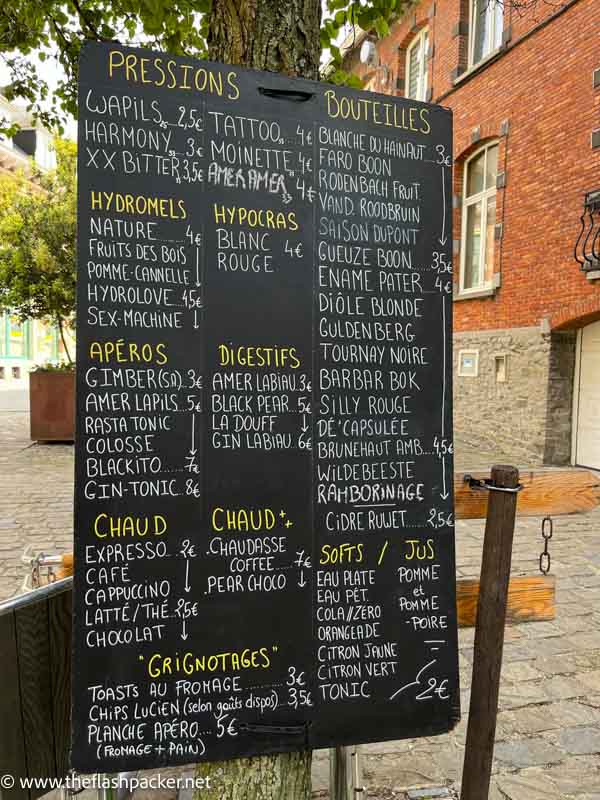 PRESSIONS
WAPILS 25 2,5€
HARMONY 25 3€
XX BITTER 25 3,5€
TATTOO 25 4€
MOINETTE 25 4€
AMER AMER 33 4€
HYDROMELS
NATURE........ 4€
FRUITS DES BOIS
POMME-CANNELLE
HYDROLOVE.. 4,5€
SEX-MACHINE
HYPOCRAS
BLANC 4€
ROUGE
APÉROS
GIMBER(SD) 3€
AMER LAPILS.. 5€
RASTA TONIC
COLOSSE
BLACKITO....... 7€
GIN-TONIC.. 8€
DIGESTIFS
AMER LABIAU. 3€
BLACK PEAR.. 5€
LA DOUFF
GIN LABIAU.. 6€
CHAUD
EXPRESSO... 2€
CAFÉ
CAPPUCCINO
LATTÉ/THÉ. 2,5€
CHOCOLAT
CHAUD++
.CHAUDASSE
COFFEE..... 7€
.PEAR CHOCO
"GRIGNOTAGES"
TOASTS AU FROMAGE............ 3€
CHIPS LUCIEN (selon goûts dispos)... 3,5€
PLANCHE APÉRO.... 5€
(FROMAGE + PAIN)
BOUTEILLES
BLANCHE DU HAINAUT.. 3€
FARO BOON
RODENBACH FRUIT.
VAND. ROODBRUIN
SAISON DUPONT
GUEUZE BOON...... 3,5€
ENAME PATER... 4€
DIÔLE BLONDE
GULDENBERG
TOURNAY NOIRE
BARBAR BOK
SILLY ROUGE
DÉ'CAPSULÉE
BRUNEHAUT AMB... 4,5€
WILDEBEESTE
RAMBORINAGE
CIDRE RUWET...... 2,5€
SOFTS / JUS
EAU PLATE
EAU PÉT.
COLA//ZÉRO
ORANGEADE
CITRON JAUNE
CITRON VERT
TONIC
POMME
et
POMME
-POIRE
2€
© www.theflashpacker.net